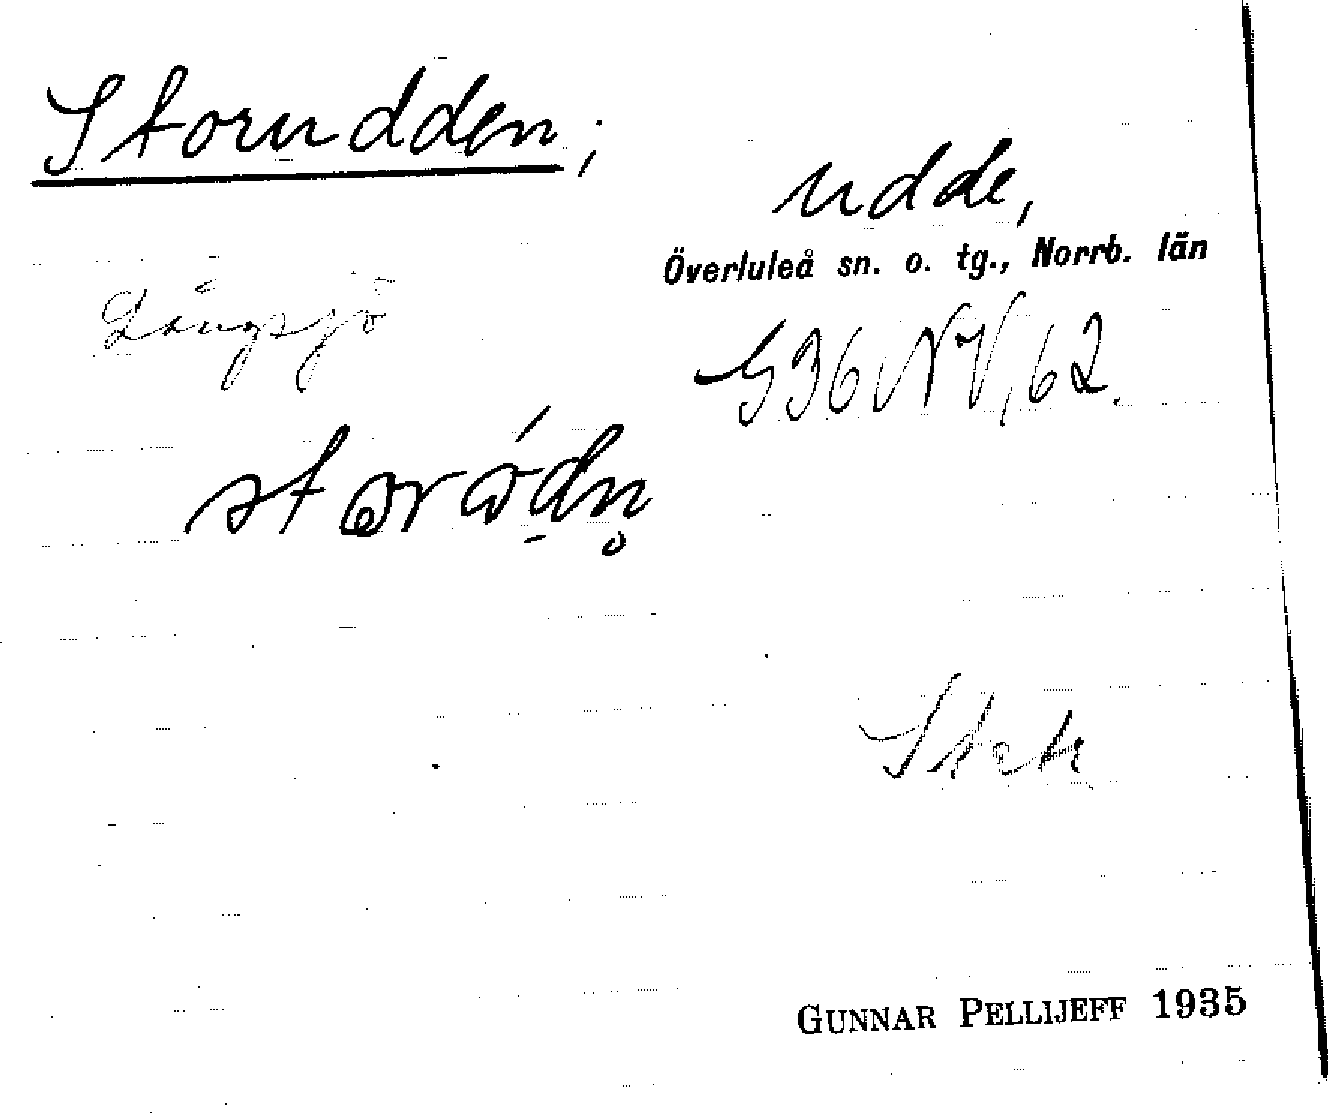 Storudden;
udde,
Överluleå sn. o. tg., Norrb. län
Långsjö
G36NV, 62.
GUNNAR PELLIJEFF 1935